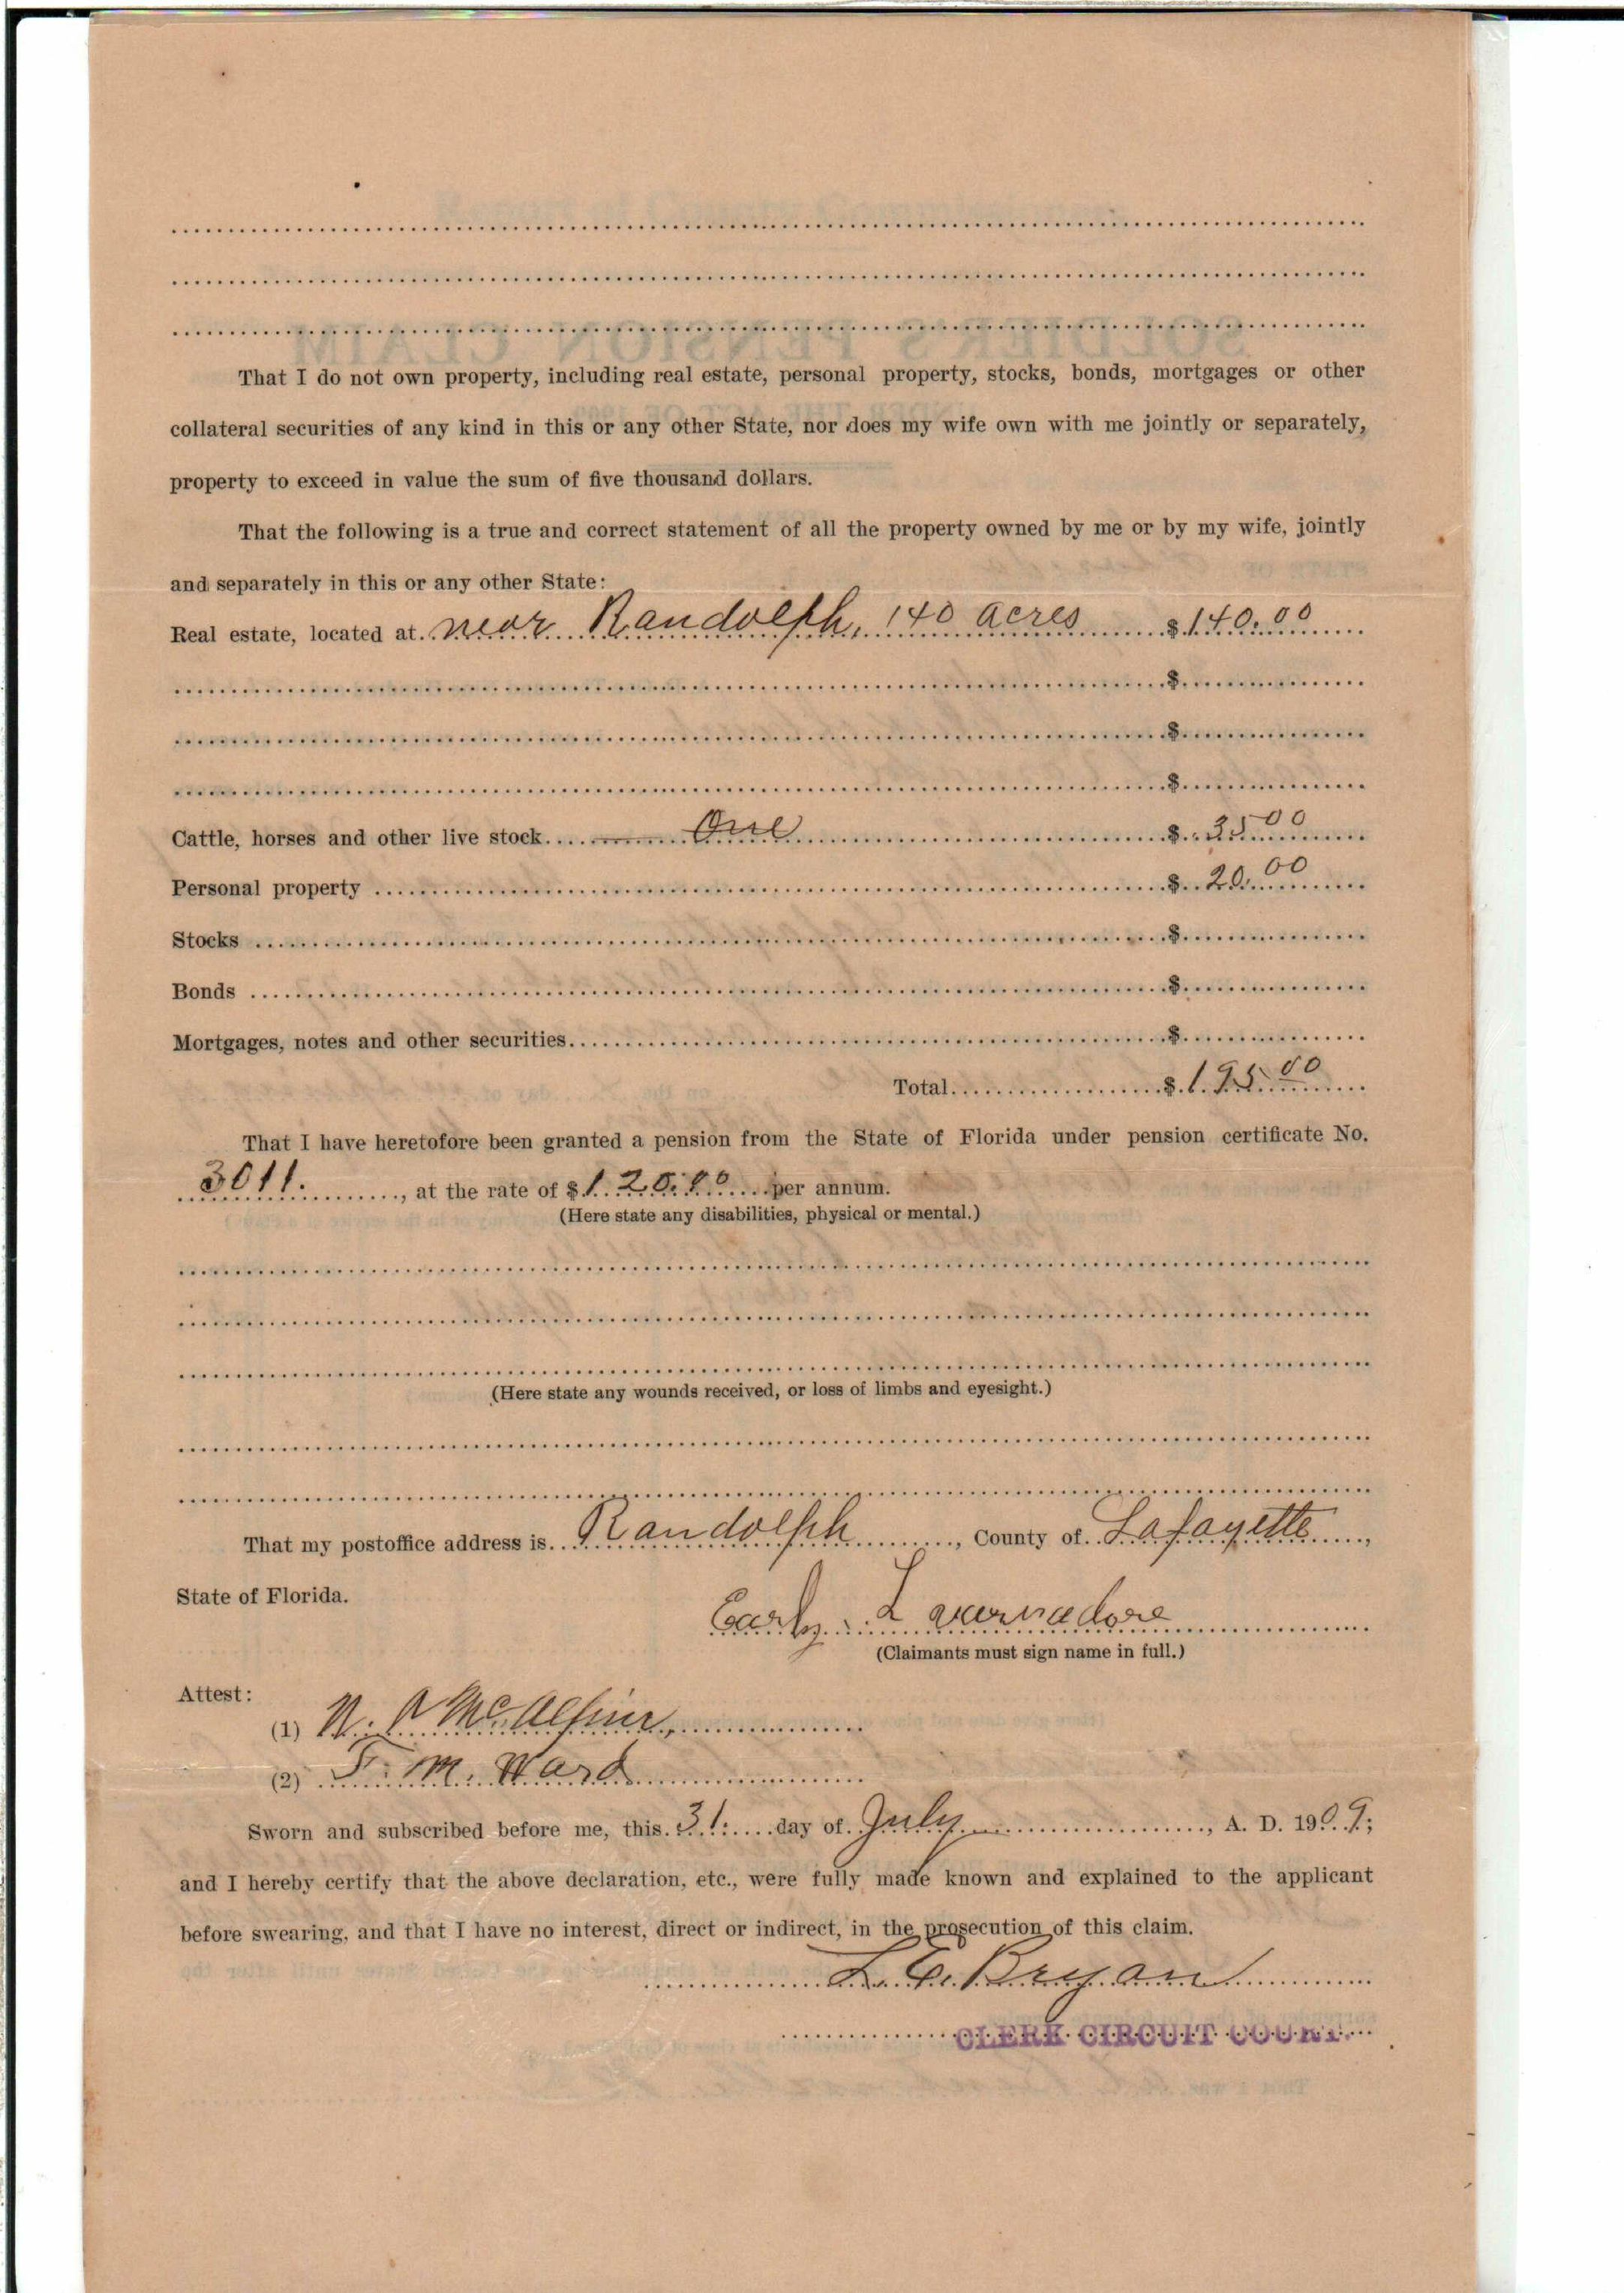 That I do not own property, including real estate, personal property, stocks, bonds, mortgages or other
collateral securities of any kind in this or any other State, nor does my wife own with me jointly or separately,
property to exceed in value the sum of five thousand dollars.
That the following is a true and correct statement of all the property owned by me or by my wife, jointly
and separately in this or any other State:
Real estate, located at near Randolph, 140 acres $140.00
$
$
$
Cattle, horses and other live stock One $35 00
Personal property $20.00
Stocks $
Bonds $
Mortgages, notes and other securities $
Total $195 00
That I have heretofore been granted a pension from the State of Florida under pension certificate No.
3011., at the rate of $120.00 per annum.
(Here state any disabilities, physical or mental.)
(Here state any wounds received, or loss of limbs and eyesight.)
That my postoffice address is Randolph, County of Lafayette,
State of Florida.
Early
(Claimants must sign name in full.)
Attest:
(1) McAlpin,
(2) F. M. Ward
Sworn and subscribed before me, this 31. day of July, A. D. 1909;
and I hereby certify that the above declaration, etc., were fully made known and explained to the applicant
before swearing, and that I have no interest, direct or indirect, in the prosecution of this claim.
L. E. Bryan
CLERK CIRCUIT COURT.
SOLDIER'S PENSION CLAIM